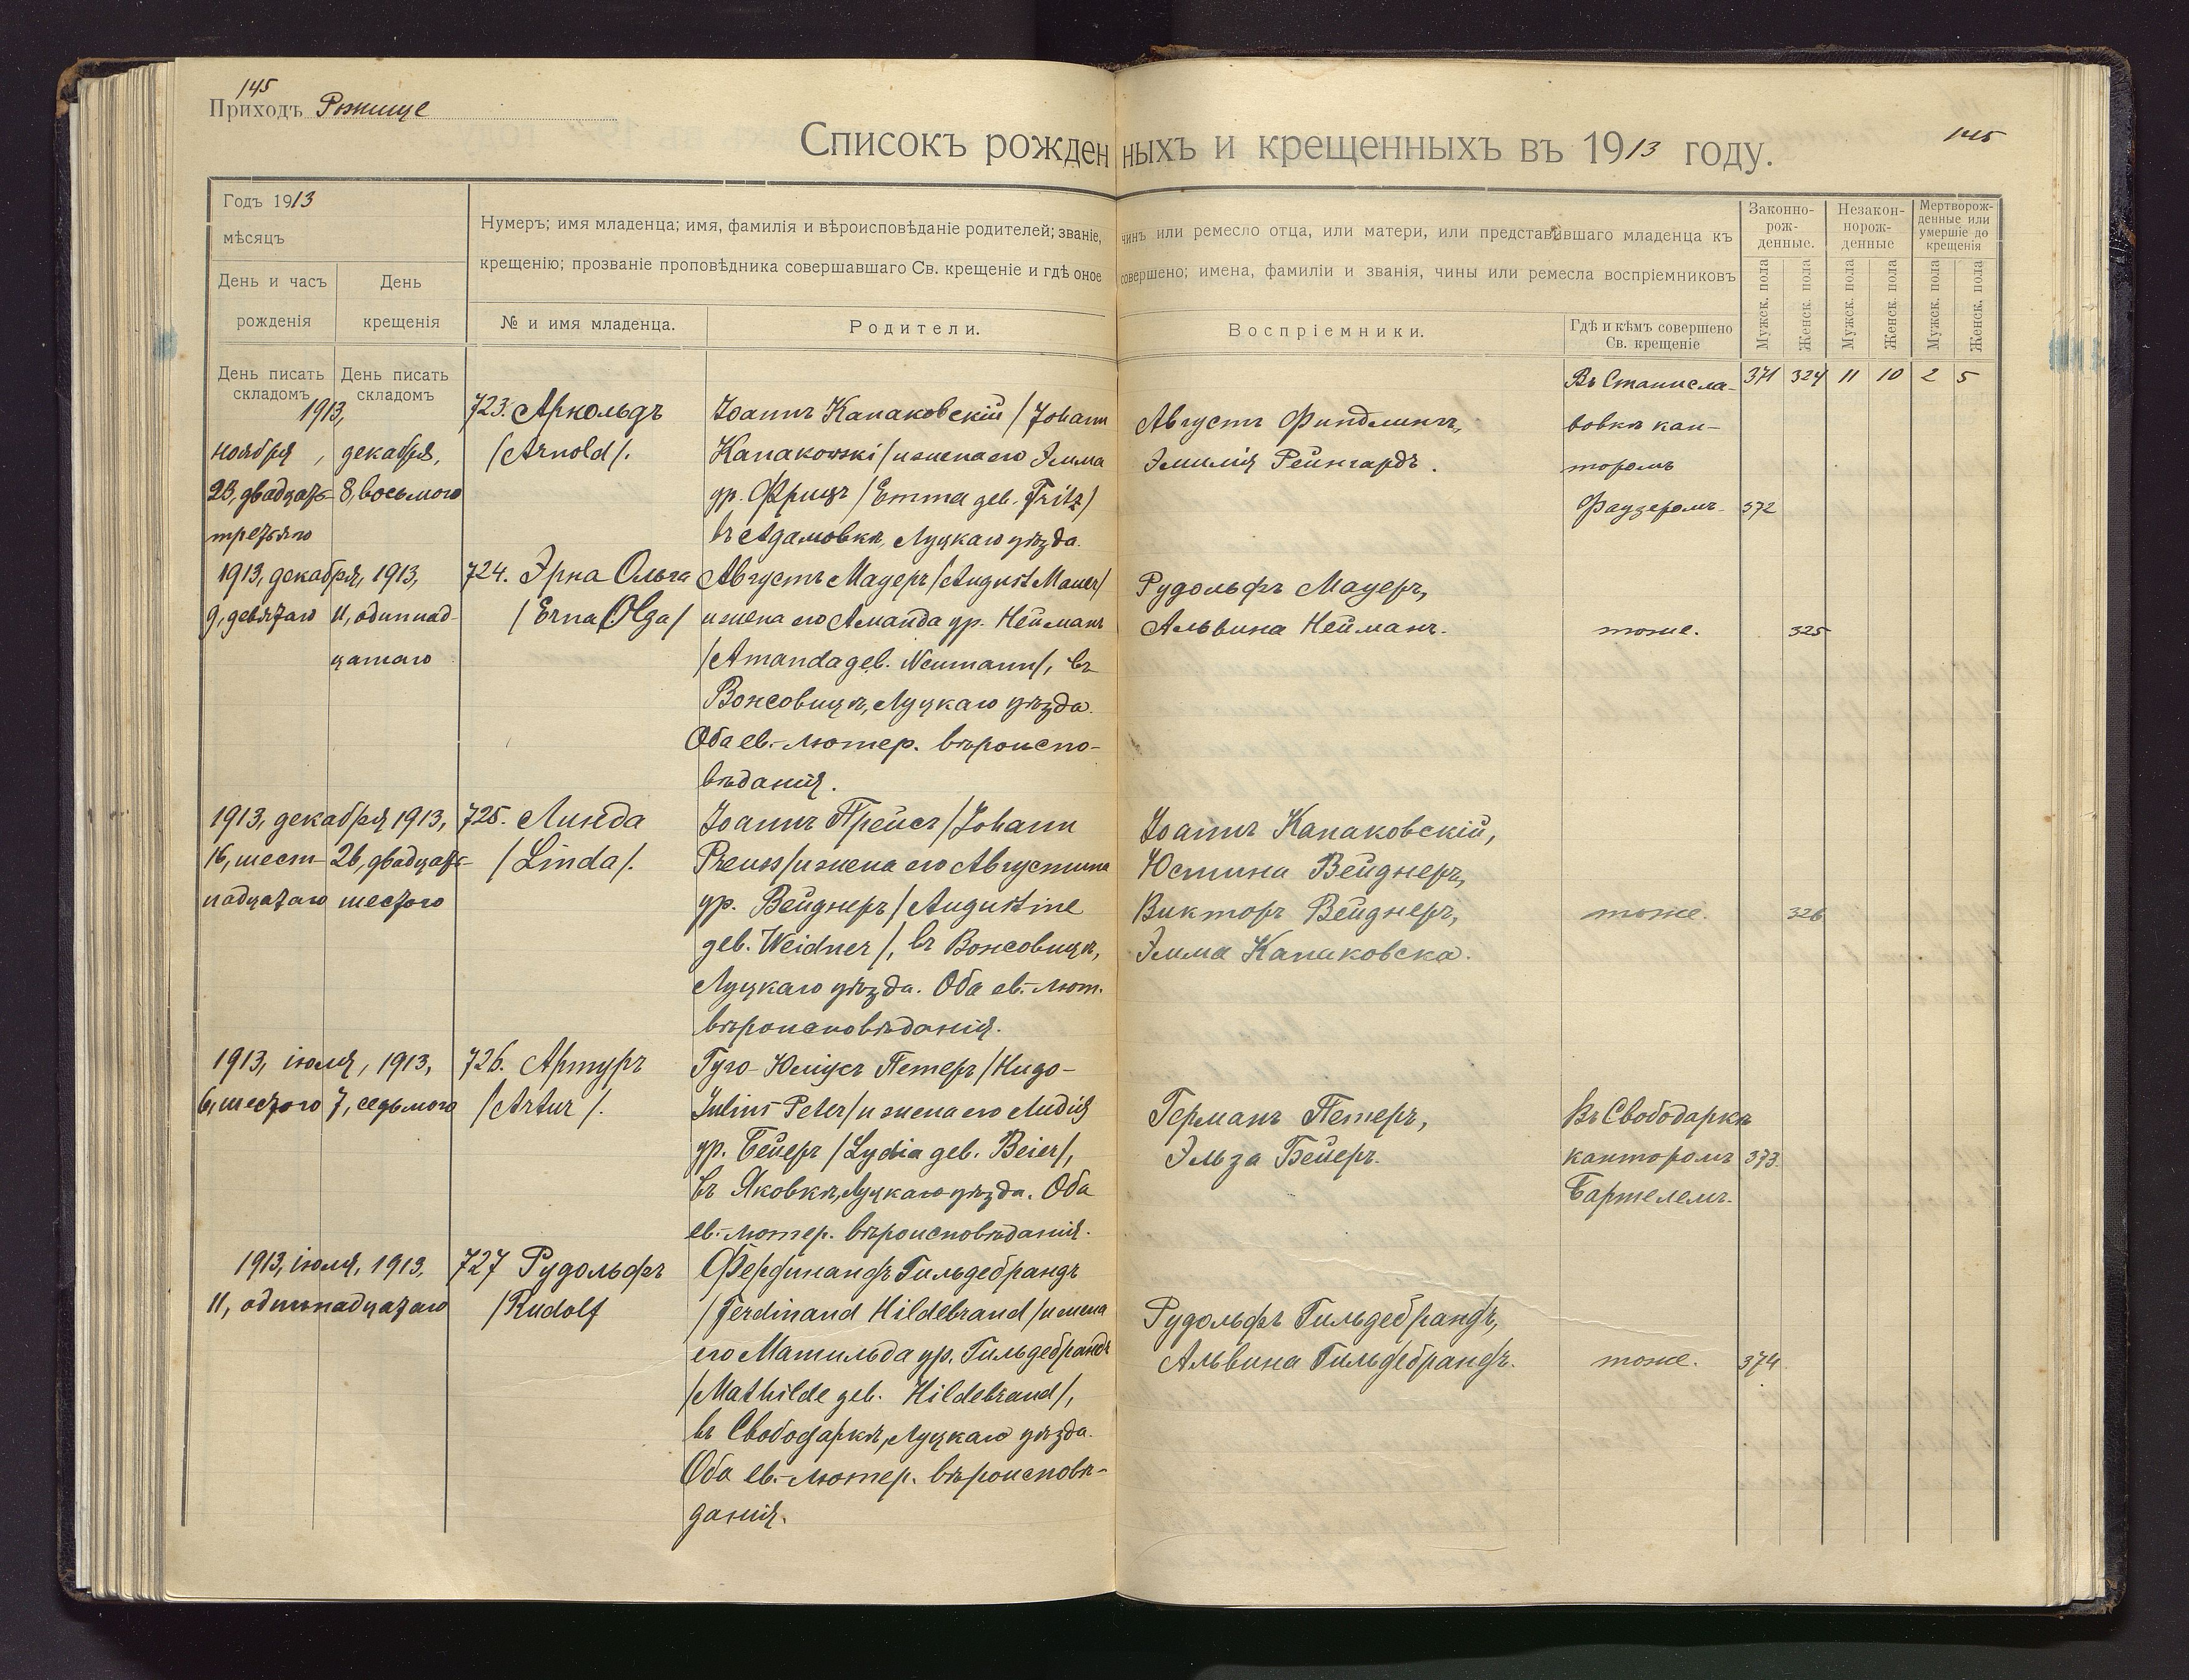 145
Приходъ Рожище
Списокъ рожденныхъ и крещенныхъ въ 1913 году.
145
Годъ 1913
мѣсяцъ
День и часъ рожденія
День крещенія
Нумеръ; имя младенца; имя, фамилія и вѣроисповѣданіе родителей; званіе, чинъ или ремесло отца, или матери, или представившаго младенца къ
крещенію; прозваніе проповѣдника совершавшаго Св. крещеніе и гдѣ оное совершено; имена, фамиліи и званія, чины или ремесла воспріемниковъ
№ и имя младенца.
Родители.
Воспріемники.
Гдѣ и кѣмъ совершено
Св. крещеніе
Законно-
рож-
денные.
Незакон-
норож-
денные
Мертворож-
денные или
умершіе до
крещенія
Мужск. пола
Женск. пола
Мужск. пола
Женск. пола
Мужск. пола
Женск. пола
День писать
складомъ
День писать
складомъ
371 324 11 10 2 5
1913,
ноября,
23, двадцать
третьяго
декабря,
8, восьмого
723. Арнольдъ
/Arnold/.
Іоаннъ Канаковскій /Johann
Kanakowski/ и жена его Эмма
ур. Фрицъ /Emma geb. Fritz/
въ Адамовкѣ, Луцкаго уѣзда.
Августъ Финдлингъ,
Эмилія Рейнгардъ.
Въ Станисла-
вовкѣ кан-
торомъ
Фаузеромъ.
372
1913, декабря, 1913,
9, девятаго
11, одиннад-
цатаго
724. Эрна Ольга
/Erna Olga/
Августъ Мауеръ /August Mauer/
и жена его Аманда ур. Нейманъ
/Amanda geb. Neumann/, въ
Вонсовицѣ, Луцкаго уѣзда.
Оба ев.-лютер. вѣроиспо-
вѣданія.
Рудольфъ Мауеръ,
Альвина Нейманъ.
тоже.
325
1913, декабря 1913,
16, шест-
надцатаго
26, двадцать
шестого
725. Линда
/Linda/.
Іоаннъ Прейсъ /Johann
Preuss/ и жена его Августина
ур. Вейднеръ /Augustine
geb. Weidner/, въ Вонсовицѣ,
Луцкаго уѣзда. Оба ев.-лют.
вѣроисповѣданія.
Іоаннъ Канаковскій,
Юстина Вейднеръ,
Викторъ Вейднеръ,
Эмма Канаковска.
тоже.
326
1913, іюля, 1913,
6, шестого
7, седьмого
726. Артуръ
/Artur/.
Гуго-Юліусъ Петеръ /Hugo-
Julius Peter/ и жена его Лидія
ур. Бейеръ /Lydia geb. Beier/,
въ Яковкѣ, Луцкаго уѣзда. Оба
ев.-лютер. вѣроисповѣданія.
Германъ Петеръ,
Эльза Бейеръ.
Въ Свободаркѣ
канторомъ
Бартелемъ.
373
1913, іюля, 1913,
11, одиннадцатаго
727 Рудольфъ
/Rudolf
Фердинандъ Гильдебрандъ
/Ferdinand Hildebrand/ и жена
его Матильда ур. Гильдебрандъ
/Mathilde geb. Hildebrand/,
въ Свободаркѣ, Луцкаго уѣзда.
Оба ев.-лютер. вѣроисповѣ-
данія.
Рудольфъ Гильдебрандъ,
Альвина Гильдебрандъ.
тоже.
374